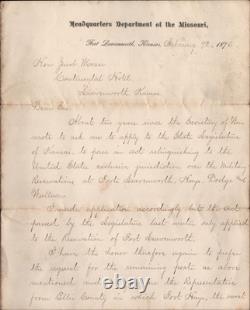 Headquarters Department of the Missouri,
Fort Leavenworth, Kansas, February 7th, 187
Hon
Continental Hotel
Leavenworth Kansas
Dear Sir,
About two years since the Secretary of War
wrote to ask me to apply to the State Legislature
of Kansas, to pass an act relinquishing to the
United States exclusive jurisdiction over the Military
Reservations at Forts Leavenworth, Hays, Dodge &
Wallace.
I made application accordingly but the act
passed by the Legislature last winter only applied
to the Reservation of Fort Leavenworth.
I have the honor therefore again to prefer
the request for the remaining posts as above
mentioned and the Representative
from Ellis County in which Fort Hays, the most